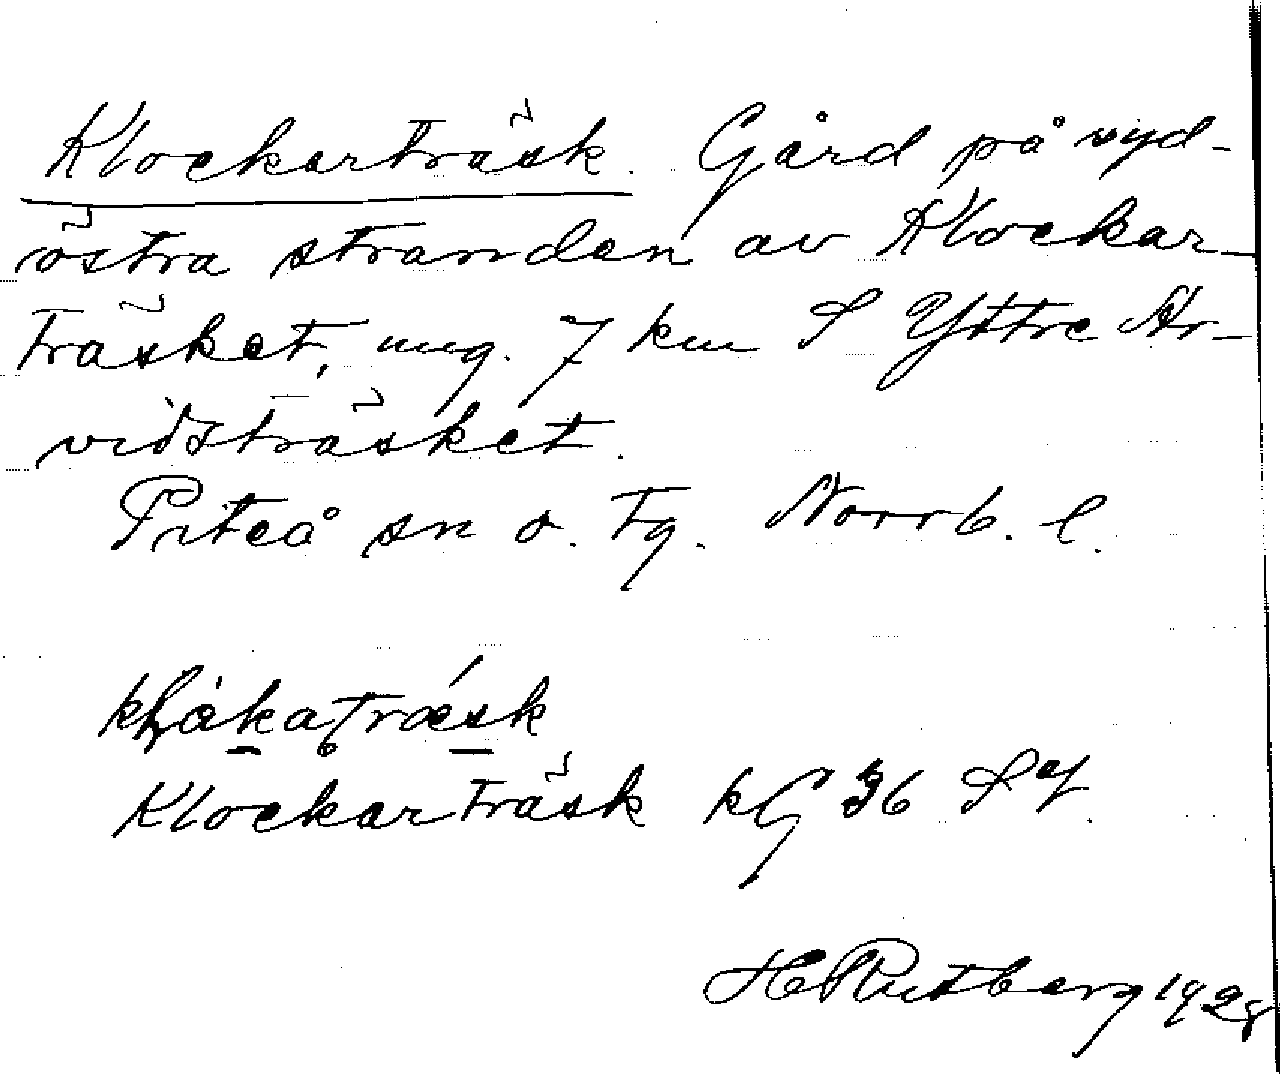 Klockarträsk. Gård på syd-
östra stranden av Klockar-
träsket, ung. 7 km S Yttre Ar-
vidsträsket.
Piteå sn o. tg. Norrb. l.
Klockarträsk kG 36 SY.
H Rutberg 1928